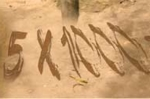 5 X 1000